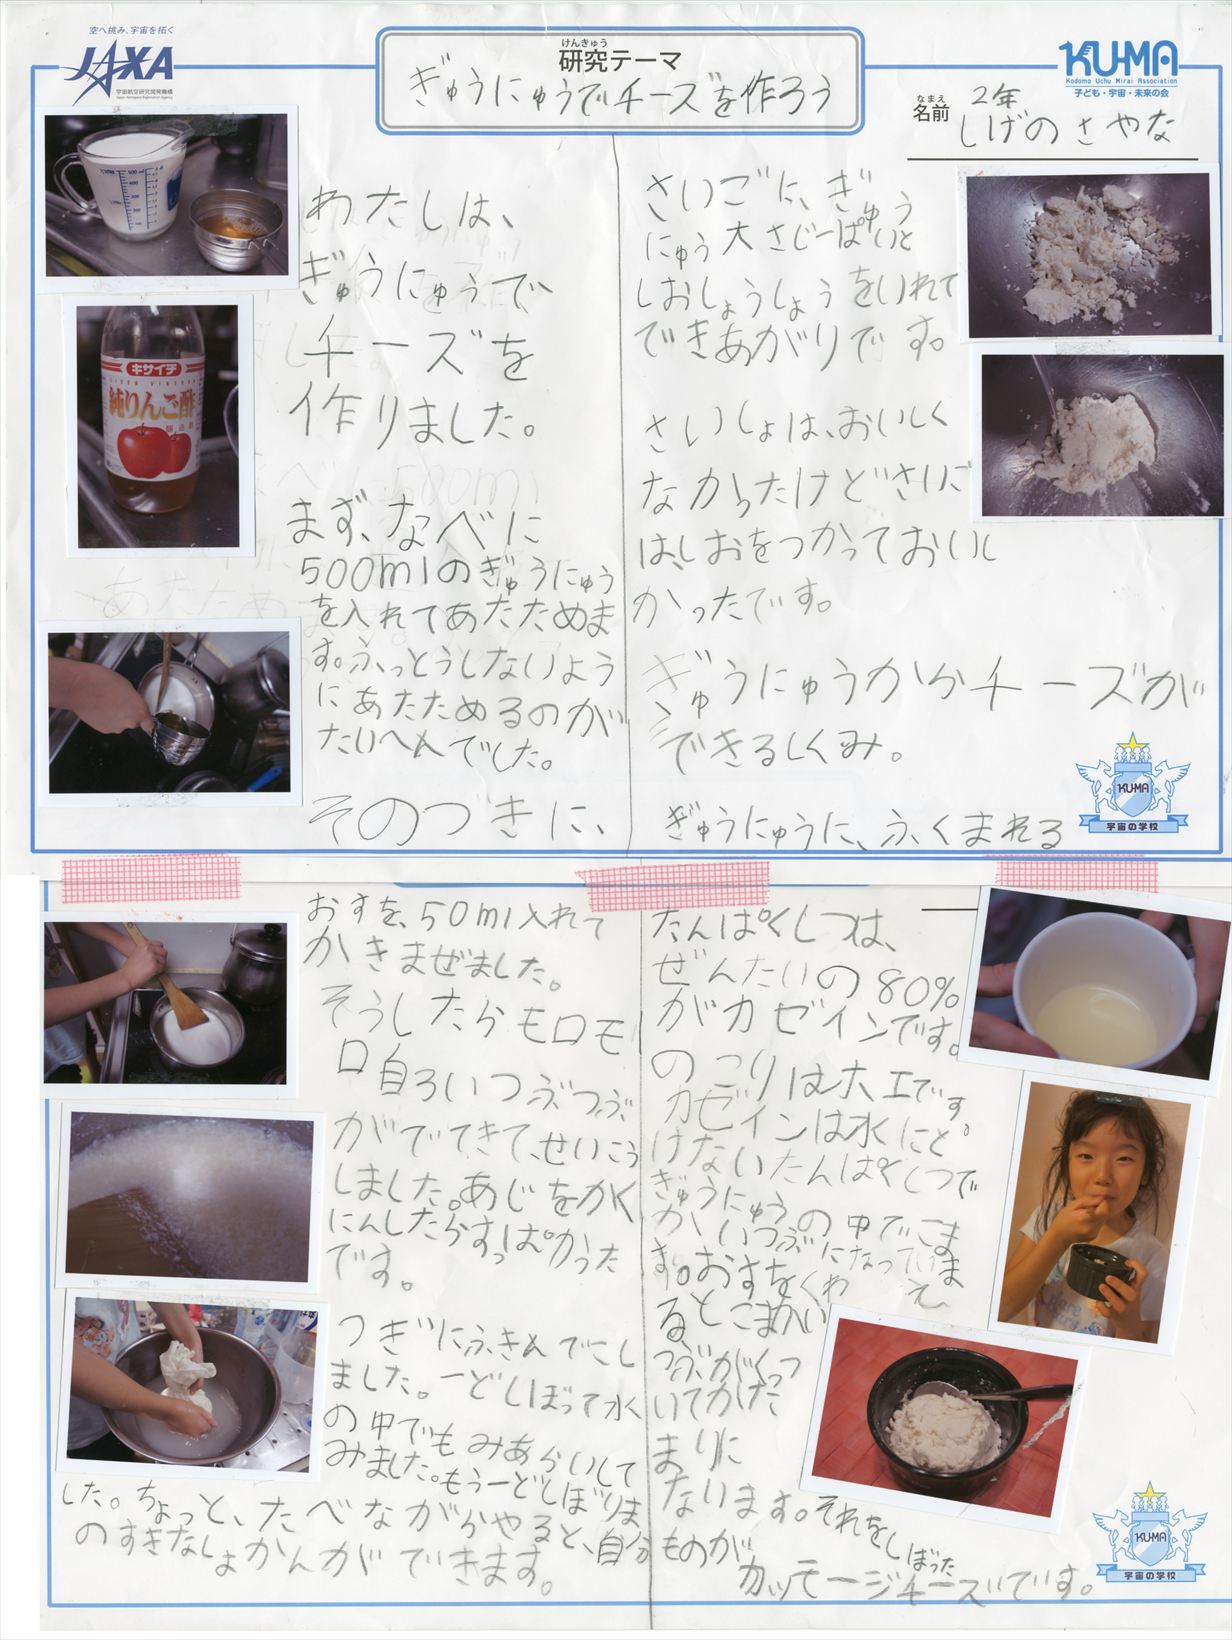 空へ挑み、宇宙を拓く
JAXA
宇宙航空研究開発機構
Japan Aerospace Exploration Agency
けんきゅう
研究テーマ
ぎゅうにゅうでチーズを作ろう
KU-MA
Kodomo Uchu Mirai Association
子ども・宇宙・未来の会
なまえ
名前
2年
しげの さやな
キサイチ
CIDER VINEGAR
純りんご酢
醸造酢
わたしは、
ぎゅうにゅうで、
チーズを
作りました。
まず、なべに
500mlのぎゅうにゅう
を入れてあたためま
す。ふっとうしないよう
にあたためるのが
たいへんでした。
そのつぎに、
おすを、50ml入れて
かきまぜました。
そうしたらモロモ
ロ白ろいつぶつぶ
がでてきて、せいこう
しました。あじをかく
にんしたらすっぱかった
です。
つぎにふきんでこし
ました。一どしぼって水
の中でもみあらいして
みました。もう一どしぼりま
した。ちょっと、たべながらやると、自分
のすきなしょかんができます。
さいごに、ぎゅう
にゅう大さじ一ぱいと
しおしょうしょうをいれて
できあがりです。
さいしょは、おいしく
なかったけどさいご
は、しおをつかっておいし
かったです。
ぎゅうにゅうからチーズが
できるしくみ。
ぎゅうにゅうに、ふくまれる
KU-MA
宇宙の学校
たんぱくしつは、
ぜんたいの80%
がカゼインです。
のこりはホエです。
カゼインは水にと
けないたんぱくしつで
ぎゅうにゅうの中でこま
かいつぶになっていま
す。おすをくわえ
るとこまかい
つぶがくっつ
いてかたま
まりに
なります。それをしぼった
ものが
カッテージチーズです。
KU-MA
宇宙の学校